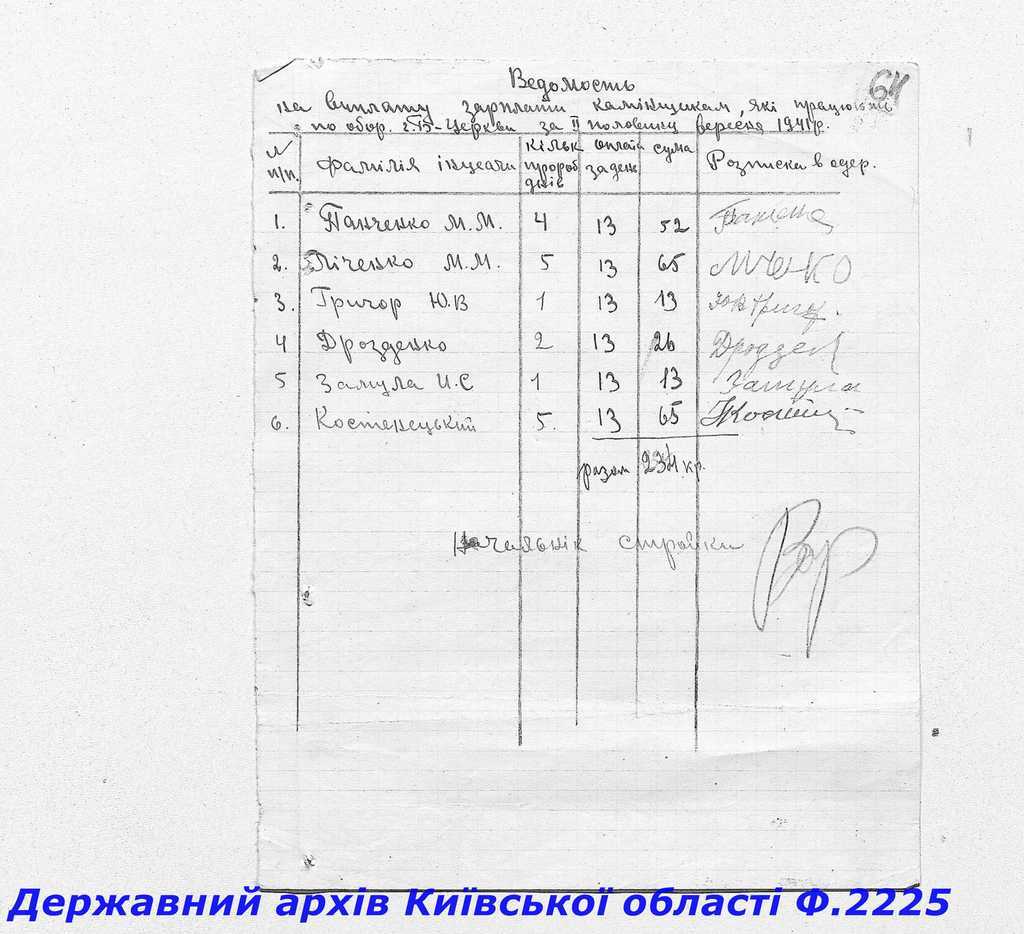 64
Ведомость
на виплату зарплати камінщикам, які працюють
по обор. г. Б-Церкви за II половину вересня 1941 р.
N п/п. Фамілія ініциали кільк. прораб днів оплата за день сума Розписка в одер.
1. Панченко М.М. 4 13 52
2. Ліченко М.М. 5 13 65 Личенко
3. Григор Ю.В 1 13 13
4 Дрозденко 2 13 26
5 Замула И.С 1 13 13 Замула
6. Костенецький 5. 13 65
разом 234 кр.
Начальнік стройки
Державний архів Київської області Ф.2225